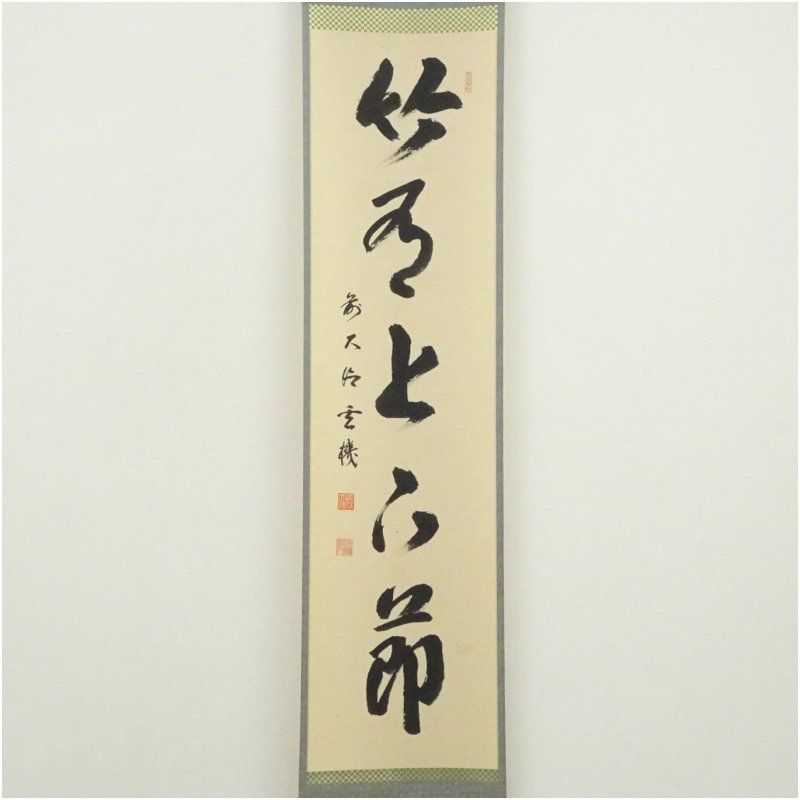 竹有上下節
前大徳雲機